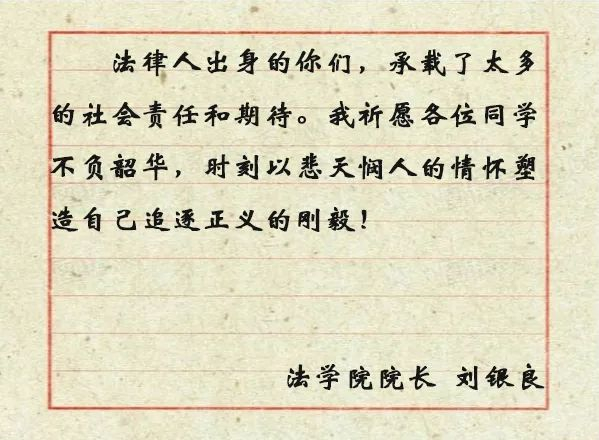 法律人出身的你们，承载了太多
的社会责任和期待。我祈愿各位同学
不负韶华，时刻以悲天悯人的情怀塑
造自己追逐正义的刚毅！
法学院院长 刘银良